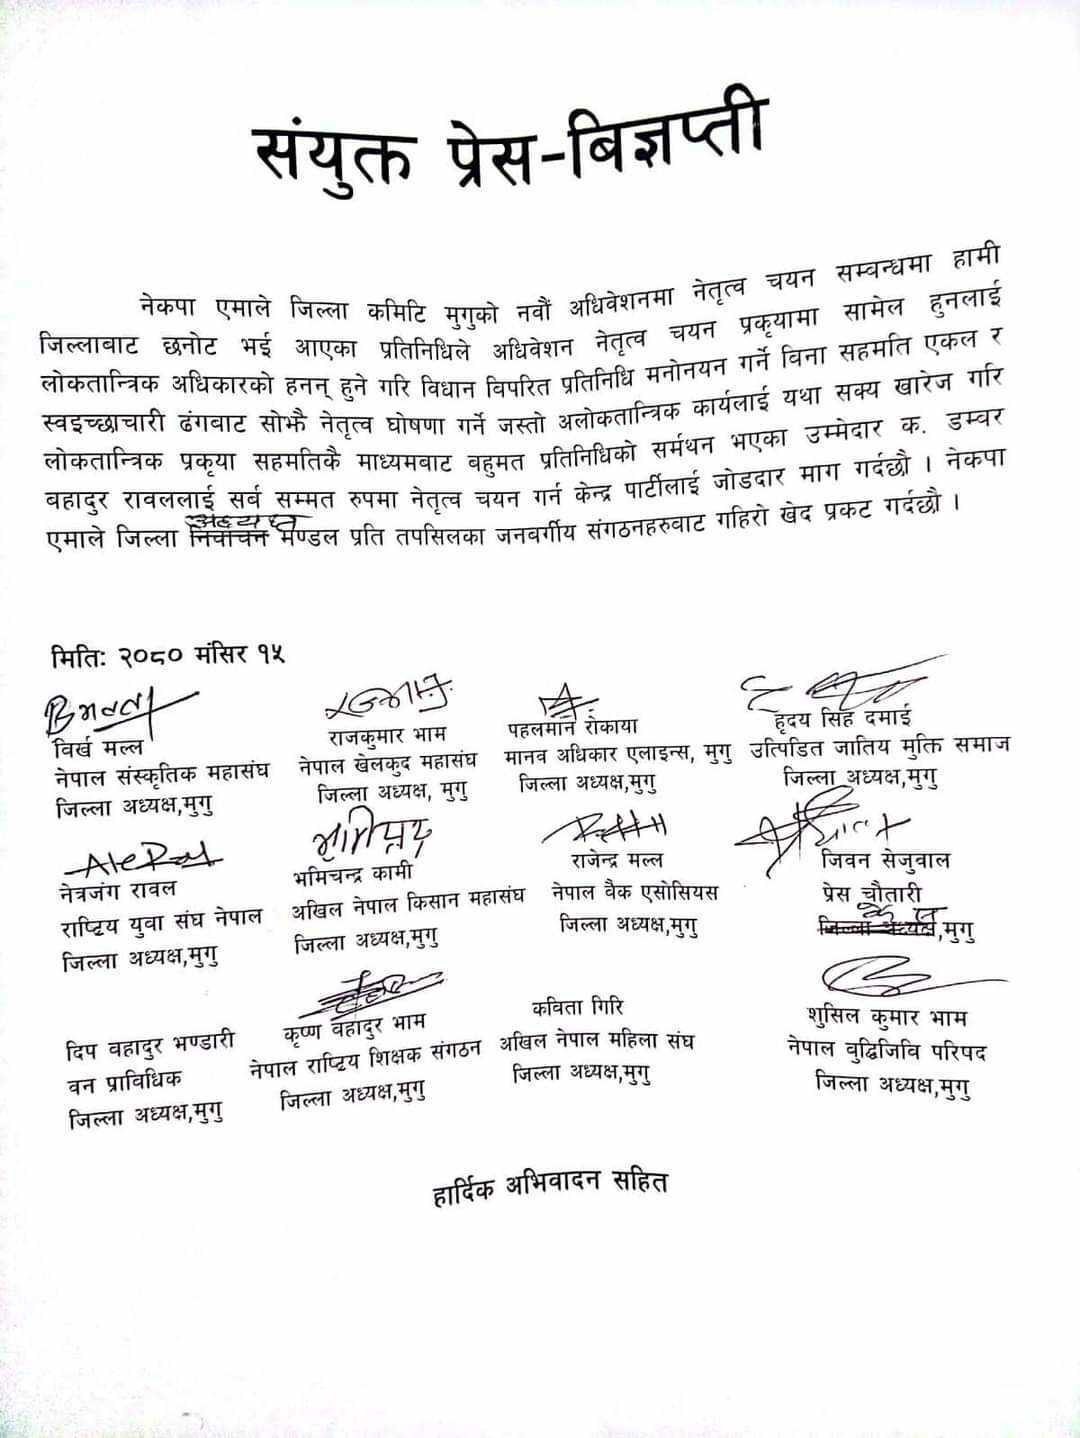 संयुक्त प्रेस-बिज्ञप्ती
नेकपा एमाले जिल्ला कमिटि मुगुको नवौं अधिवेशनमा नेतृत्व चयन सम्बन्धमा हामी
जिल्लाबाट छनोट भई आएका प्रतिनिधिले अधिवेशन नेतृत्व चयन प्रकृयामा सामेल हुनलाई
लोकतान्त्रिक अधिकारको हनन् हुने गरि विधान विपरित प्रतिनिधि मनोनयन गर्ने विना सहमति एकल र
स्वइच्छाचारी ढंगबाट सोझै नेतृत्व घोषणा गर्ने जस्तो अलोकतान्त्रिक कार्यलाई यथा सक्य खारेज गरि
लोकतान्त्रिक प्रकृया सहमतिकै माध्यमबाट बहुमत प्रतिनिधिको सर्मथन भएका उम्मेदार क. डम्वर
बहादुर रावललाई सर्व सम्मत रुपमा नेतृत्व चयन गर्न केन्द्र पार्टीलाई जोडदार माग गर्दछौ । नेकपा
एमाले जिल्ला निर्वाचन मण्डल प्रति तपसिलका जनवर्गीय संगठनहरुवाट गहिरो खेद प्रकट गर्दछौ ।
मितिः २०८० मंसिर १५
विर्ख मल्ल
नेपाल संस्कृतिक महासंघ
जिल्ला अध्यक्ष,मुगु
राजकुमार भाम
नेपाल खेलकुद महासंघ
जिल्ला अध्यक्ष, मुगु
पहलमान रोकाया
मानव अधिकार एलाइन्स, मुगु
जिल्ला अध्यक्ष,मुगु
हृदय सिंह दमाई
उत्पिडित जातिय मुक्ति समाज
जिल्ला अध्यक्ष,मुगु
नेत्रजंग रावल
राष्ट्रिय युवा संघ नेपाल
जिल्ला अध्यक्ष,मुगु
भमिचन्द्र कामी
अखिल नेपाल किसान महासंघ
जिल्ला अध्यक्ष,मुगु
राजेन्द्र मल्ल
नेपाल वैक एसोसियस
जिल्ला अध्यक्ष,मुगु
जिवन सेजुवाल
प्रेस चौतारी
जिल्ला अध्यक्ष,मुगु
दिप वहादुर भण्डारी
वन प्राविधिक
जिल्ला अध्यक्ष,मुगु
कृष्ण वहादुर भाम
नेपाल राष्ट्रिय शिक्षक संगठन
जिल्ला अध्यक्ष,मुगु
कविता गिरि
अखिल नेपाल महिला संघ
जिल्ला अध्यक्ष,मुगु
शुसिल कुमार भाम
नेपाल वुद्धिजिवि परिपद
जिल्ला अध्यक्ष,मुगु
हार्दिक अभिवादन सहित